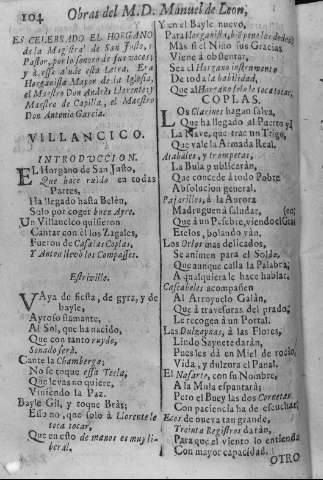 104 Obras del M.D. Manuel de Leon,
ES CELEBRADO EL HORGANO
de la Magistral de San Justo, y
Pastor, por lo sonoro de sus voces;
y à esso alude esta Letra. Era
Horganista Mayor de la Iglesia,
el Maestro Don Andrès Llorente; y
Maestro de Capilla, el Maestro
Don Antonio Garcia.
VILLANCICO.
INTRODUCCION.
EL Horgano de San Justo,
Que hace ruido en todas
Partes,
Ha llegado hasta Belèn,
Solo por coger buen Ayre.
Un Villancico quisieron
Cantar con èl los Zagales,
Fueron de Casa las Coplas,
Y Anton llevò los Compasses.
Estrivillo.
VAya de fiesta, de gyra, y de
bayle,
Ayroso flamante,
Al Sol, que ha nacido,
Que con tanto ruydo,
Sonado serà.
Cante la Chamberga;
No se toque essa Tecla,
Que levas no quiere,
Viniendo la Paz.
Bayle Gil, y toque Bràs;
Esso no, que solo à Llorente le
toca tocar,
Que en esto de manos es muy li-
beral.
Y en el Bayle nuevo,
Para Horganista,
Mas si el Niño sus Gracias
Viene à obstentar,
Sea el Horgano instrumento
De toda la habilidad,
Que al Horgano solo le toca tocar,
COPLAS.
LOs Clarines hagan salva,
Que ha llegado al Puerto yà
La Nave, que trae un Trigo,
Que vale la Armada Real.
Atabàles, y trompetas,
La Bula publicaràn,
Que concede à todo Pobre
Absolucion general.
Pajarillos, à la Aurora
Madruguen à saludar,
Que à un Pesebre, viendo el
Etelos, bolando vàn.
Los Orlos mas delicados,
Se animen para el Solàz,
Que aunque calla la Palabra,
A qualquiera le hace hablar.
Cascabeles acompañen
Al Arroyuelo Galàn,
Que à travesuras del prado,
Le recogen à un Portal.
Las Dulzaynas, à las Flores,
Lindo Saynete daràn,
Pues les dà en Miel de rocìo,
Vida, y dulzura el Panal.
El Nasarte, con su Nombre,
A la Mula espantarà;
Pero el Buey las dos Cornetas
Con paciencia ha de escuchar,
Ecos de nueva tan grande,
Treinta Registros daràn,
Para que el viento lo entienda
Con mayor capacidad.
OTRO